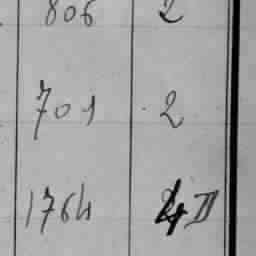 806 2
701 2
1764 4 D